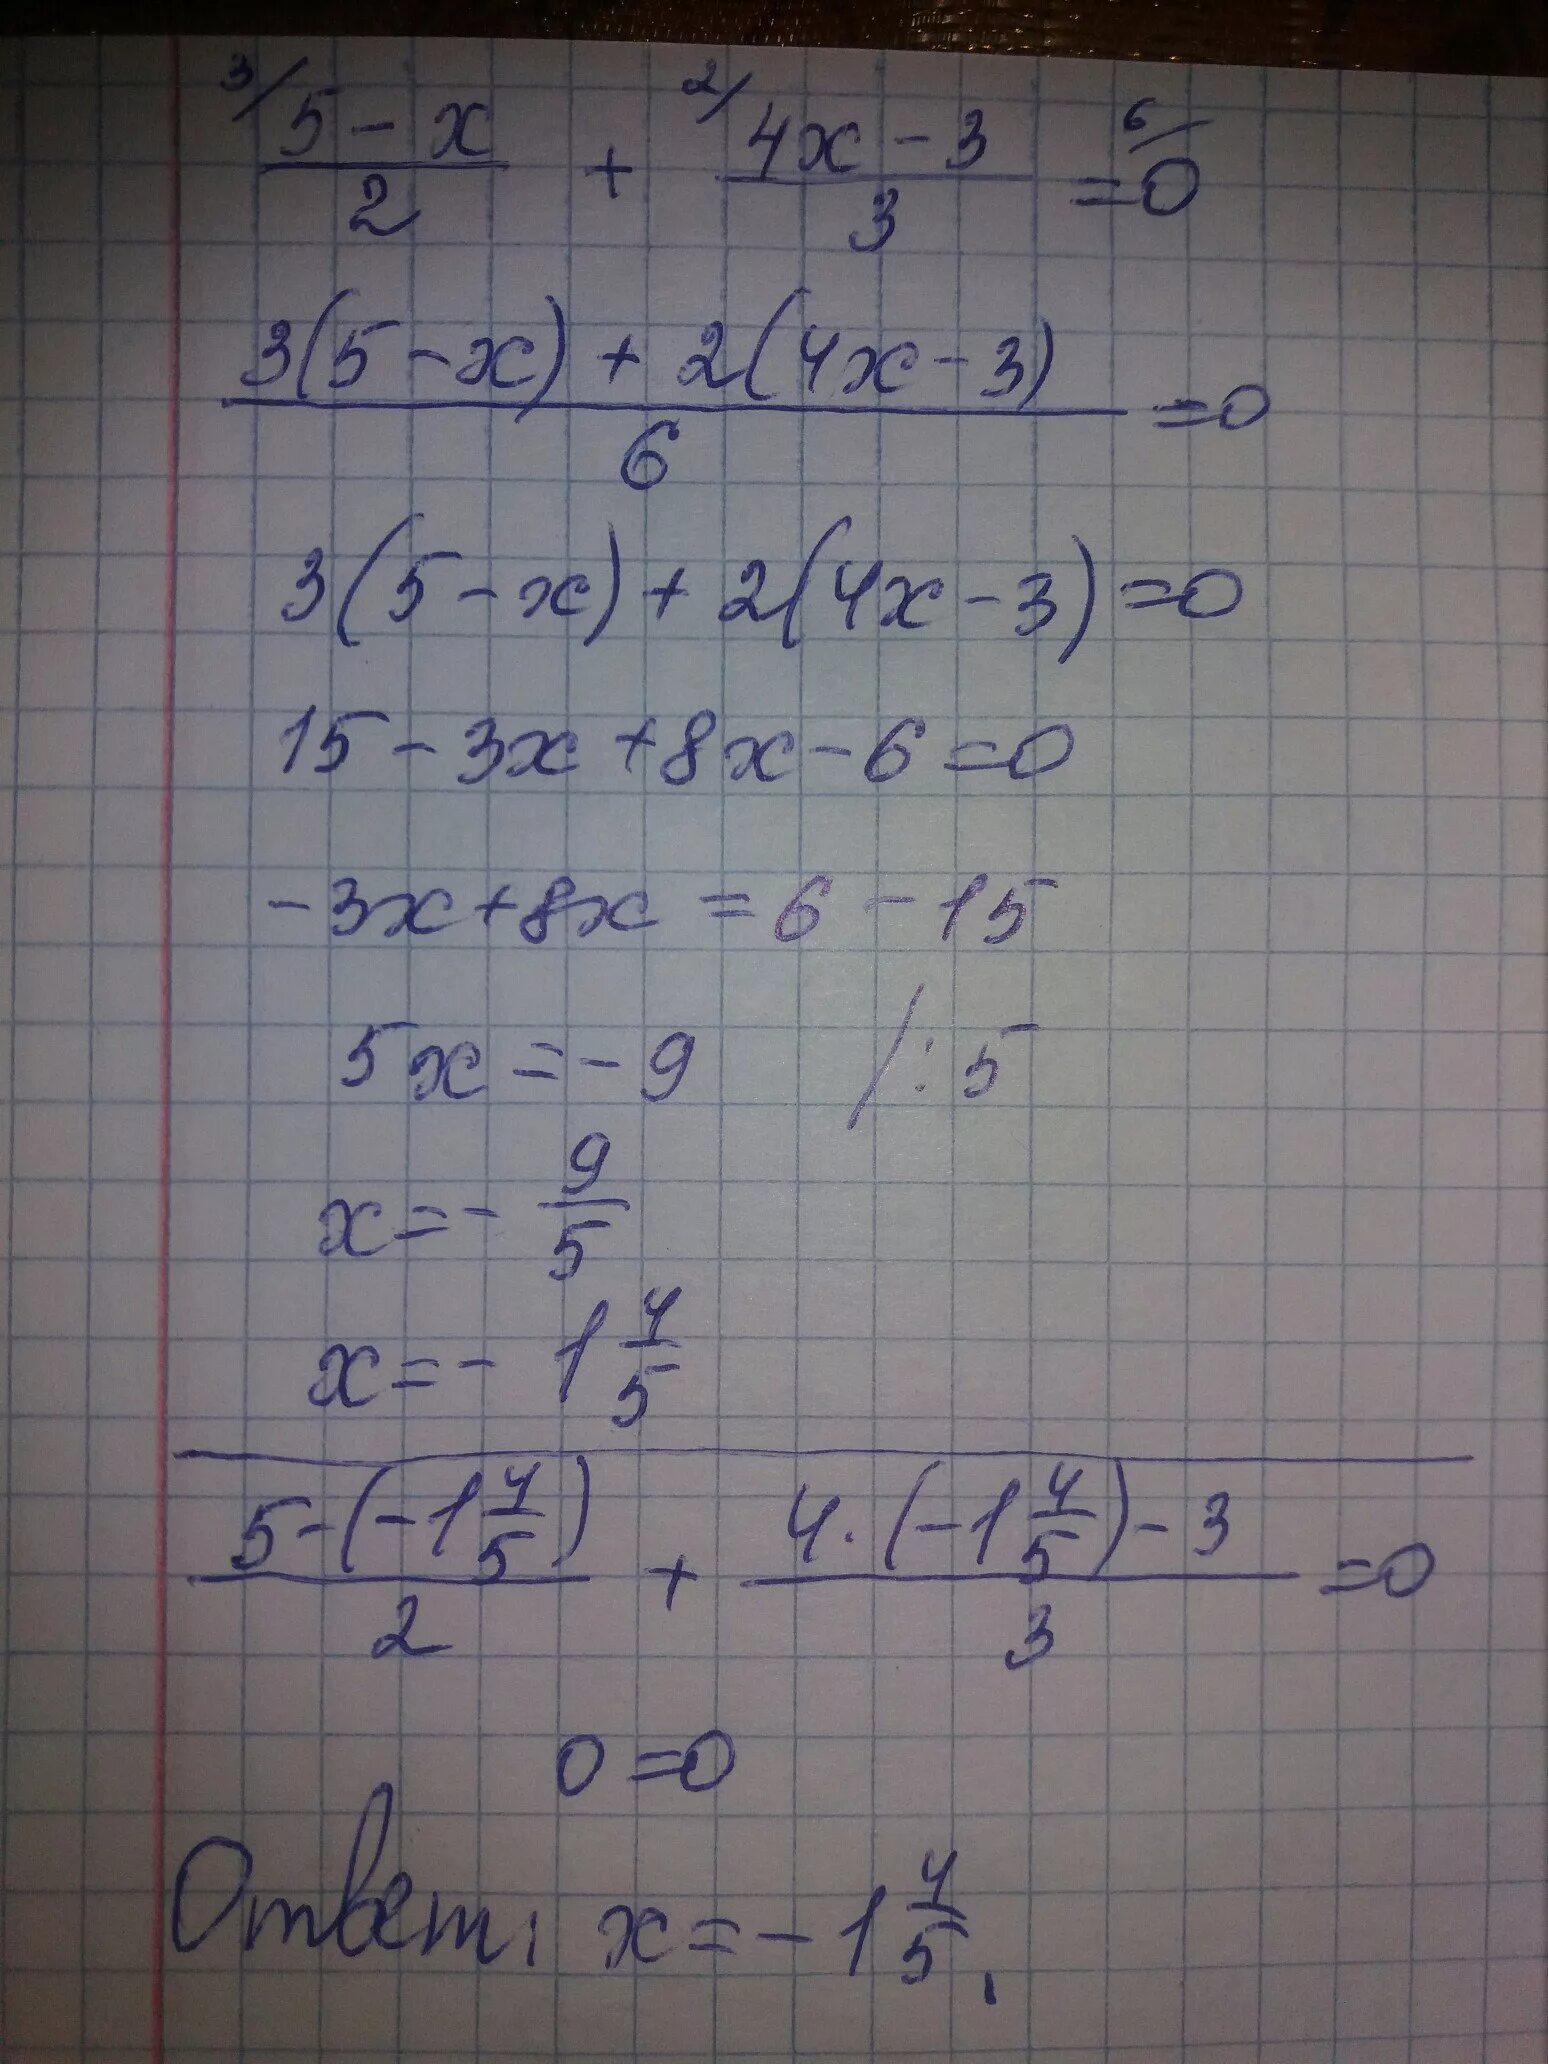 3/ (5 - x)/2 + 2/ (4x - 3)/3 = 6/ 0
(3(5 - x) + 2(4x - 3))/6 = 0
3(5 - x) + 2(4x - 3) = 0
15 - 3x + 8x - 6 = 0
- 3x + 8x = 6 - 15
5x = - 9 / : 5
x = - 9/5
x = - 1 4/5
(5 - (- 1 4/5))/2 + (4 · (- 1 4/5) - 3)/3 = 0
0 = 0
Ответ: x = - 1 4/5.